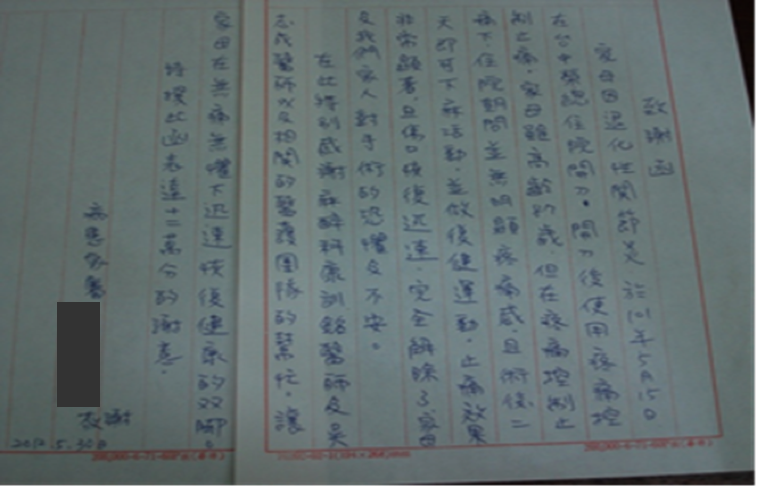 致謝函
家母因退化性關節炎 於101年5月15日
在台中榮總住院開刀。開刀後使用疼痛控
制止痛,家母雖高齡 歲,但在疼痛控制止
痛下,住院期間並無明顯疼痛感,且術後二
天即可下床活動,並做復健運動,止痛效果
非常顯著,且傷口恢復迅速,完全解除了家母
及我們家人對手術的恐懼及不安。
在此特別感謝麻醉科康訓銘醫師及吳
志成醫師以及相關的醫護團隊的幫忙,讓
家母在無痛無懼下迅速恢復健康的双腳。
特授此函表達十二萬分的謝意。
病患家屬
敬謝
2012.5.30